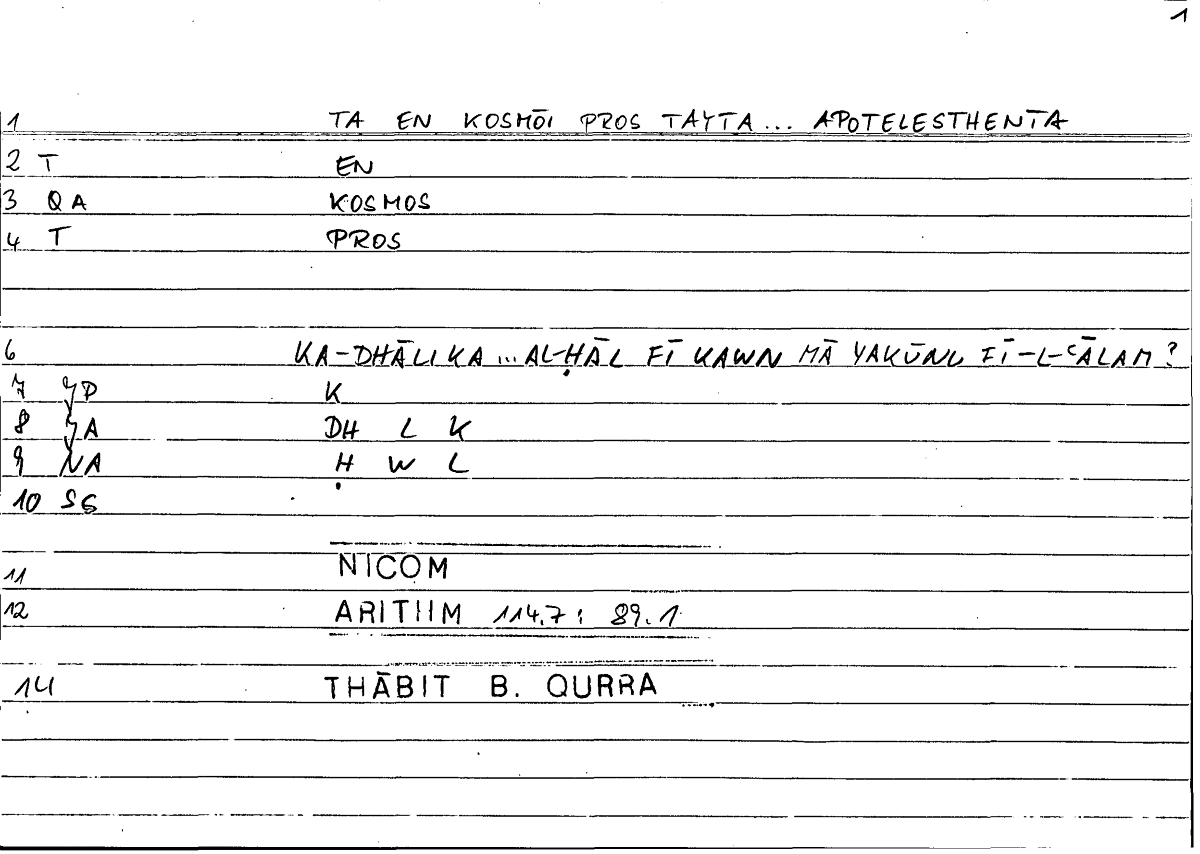 1
1 TA EN KOSMŌI PROS TAYTA... APOTELESTHENTA
2 T EN
3 QA KOSMOS
4 T PROS
6 KA-DHĀLIKA...AL-ḤĀL FĪ KAWN MĀ YAKŪNU FĪ-L-ʿĀLAM?
7 K
8 DH L K
9 NA Ḥ W L
10 SG
11 NICOM
12 ARITHM 114.7: 89.1
14 THĀBIT B. QURRA